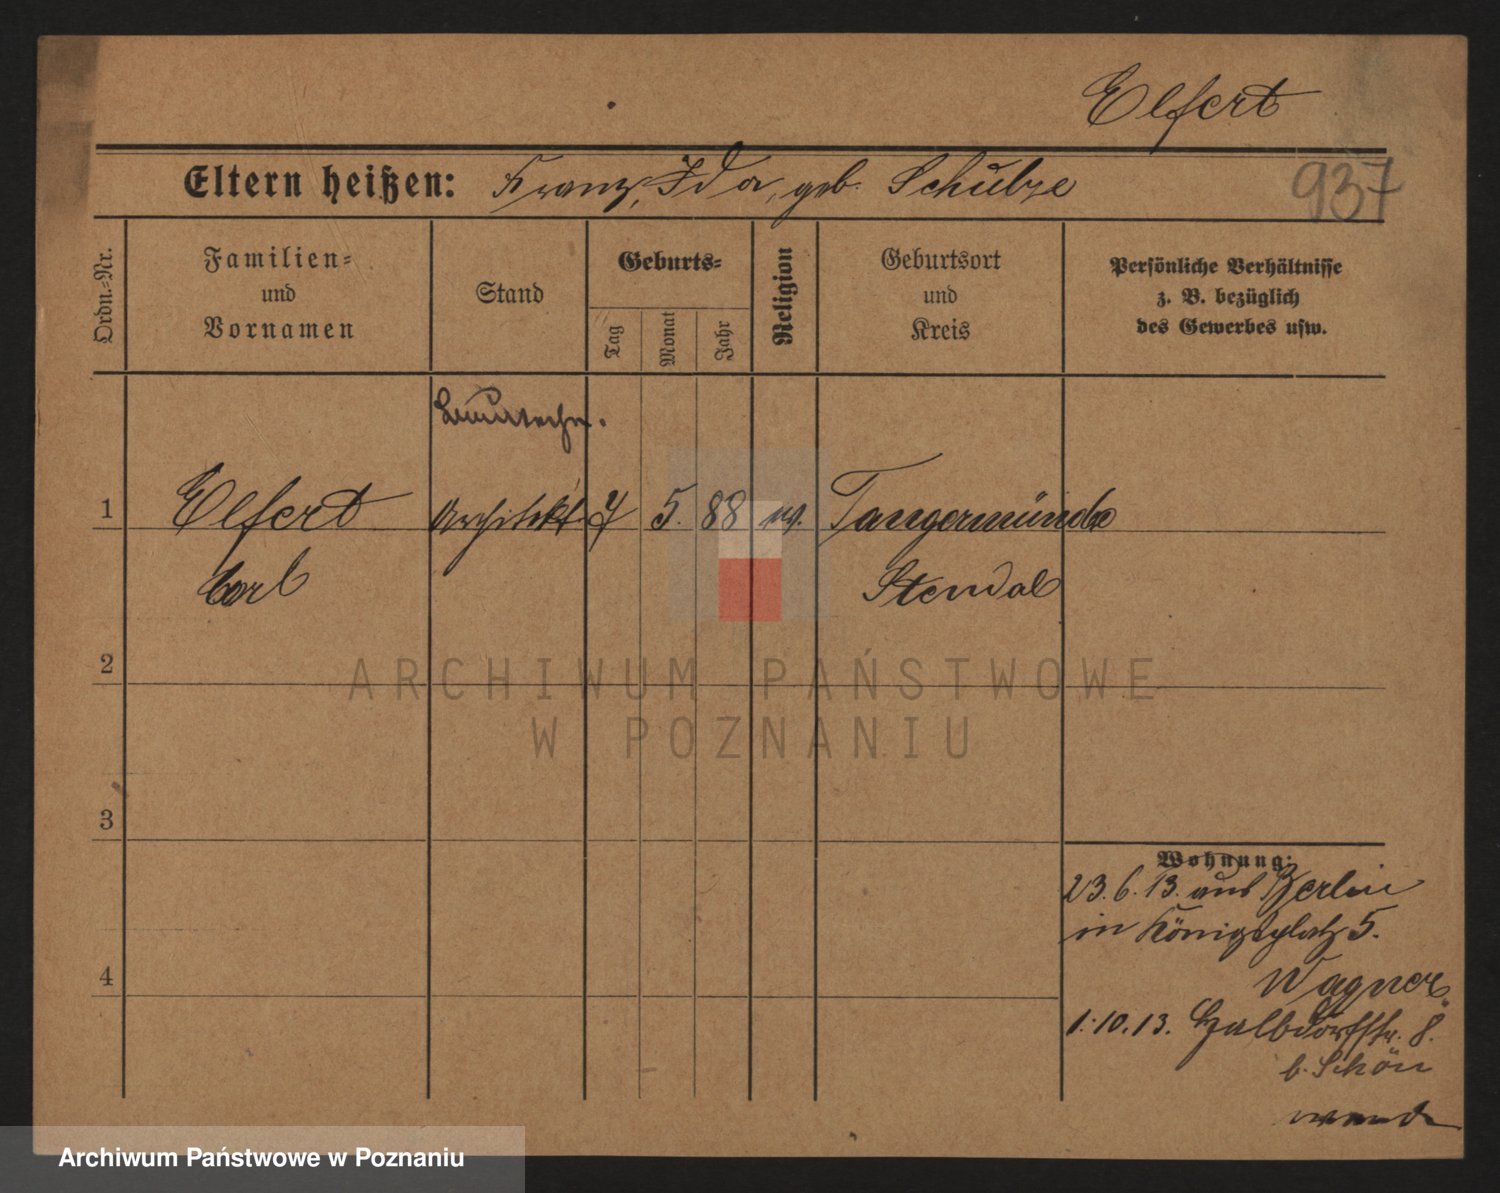 Elfert
Eltern heißen: Franz, Ida, geb. Schulze
937
Ordn.=Nr.
Familien=
und
Vornamen
Stand
Geburts=
Tag
Monat
Jahr
Religion
Geburtsort
und
Kreis
Persönliche Verhältnisse
z. B. bezüglich
des Gewerbes usw.
1
Elfert
Architekt
7
5.
88
ev.
Tangermünde
Carl
Stendal
2
ARCHIWUM PAŃSTWOWE
W POZNANIU
3
Wohnung:
23.6.13. aus Berlin
in Königsplatz 5.
4
Wagner
1.10.13. Halbdorfstr. 8.
b. Schön
Archiwum Państwowe w Poznaniu